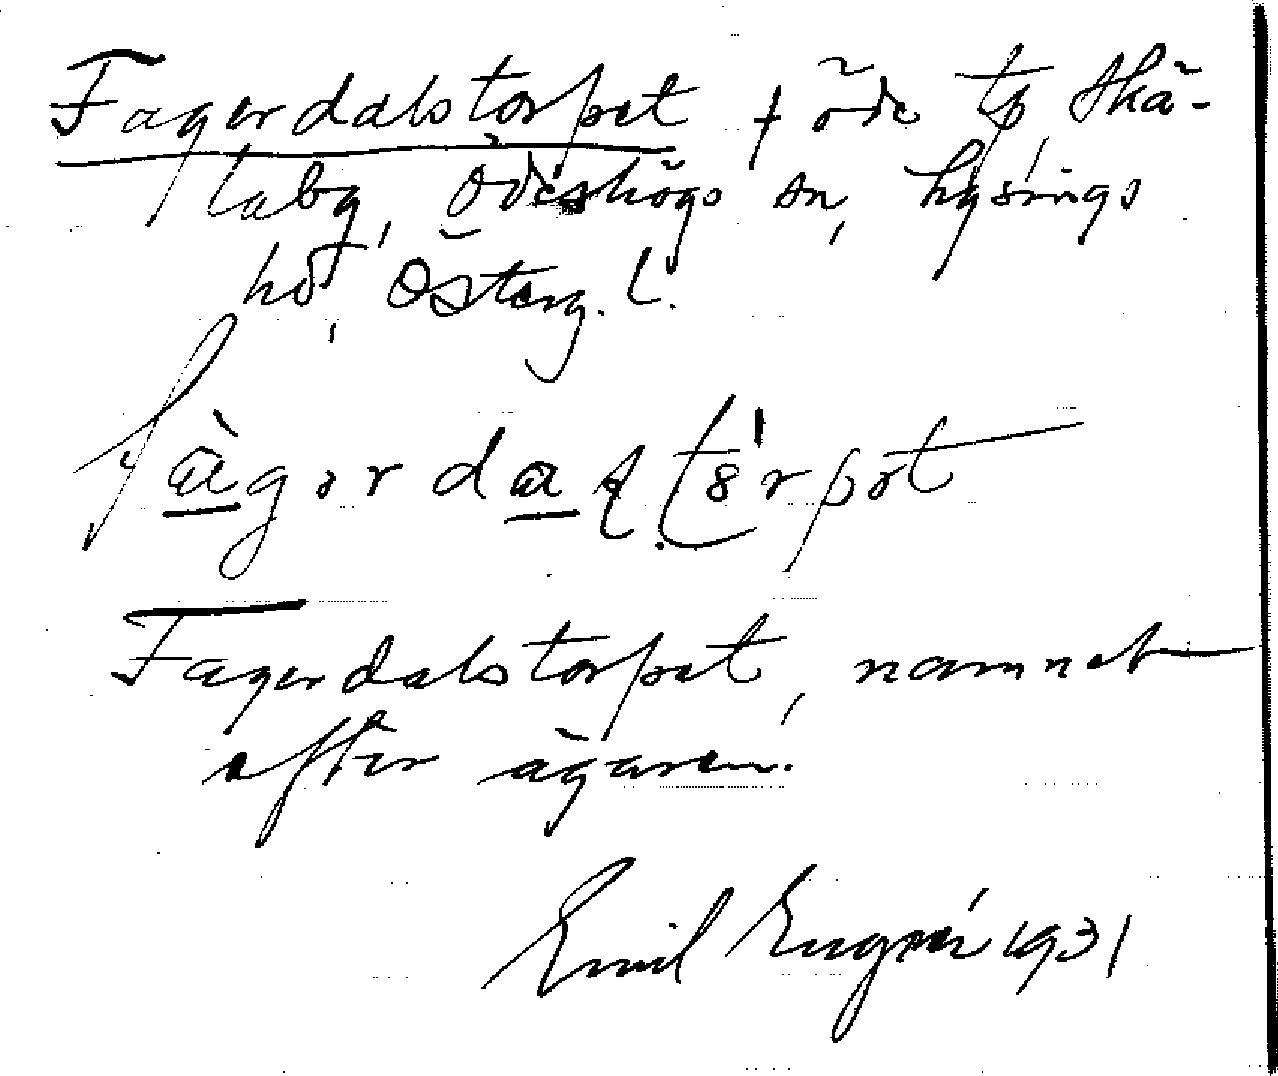 Fagerdalstorpet † öde tp, Skä-
laby, Ödeshögs sn, Lysings
hd, Österg. l.
fàgər daḷstórpət
Fagerdalstorpet, namnet
efter ägaren.
Emil 1931